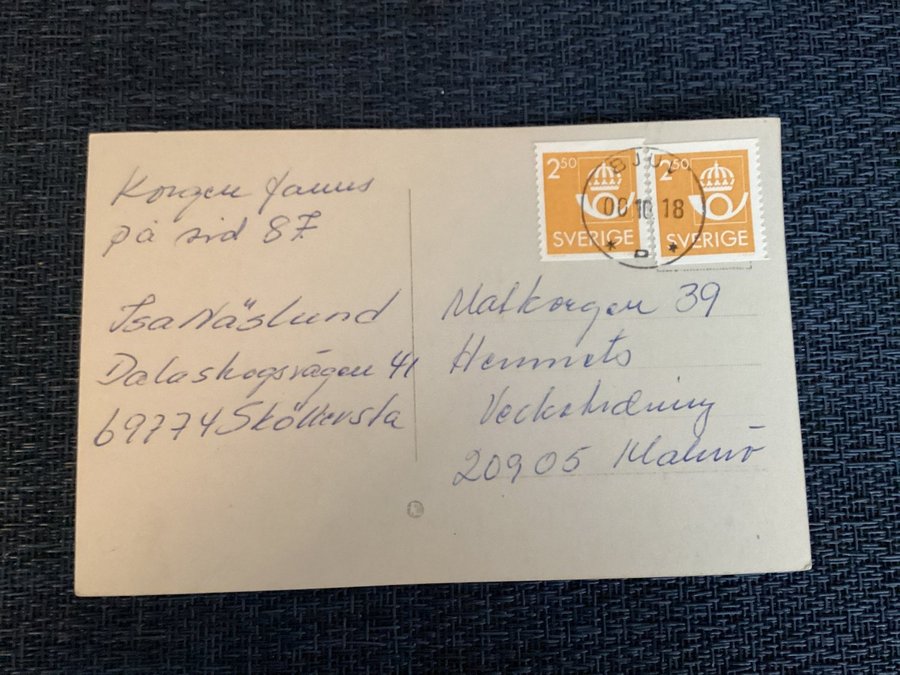 Korgen fanns
på sid 87.
Isa Näslund
Dalaskogsvägen 41
69774 Sköllersta
2 50
SVERIGE
2 50
SVERIGE
00 10 18
* D *
Matkorgen 39
Hemmets
Veckotidning
20905 Malmö